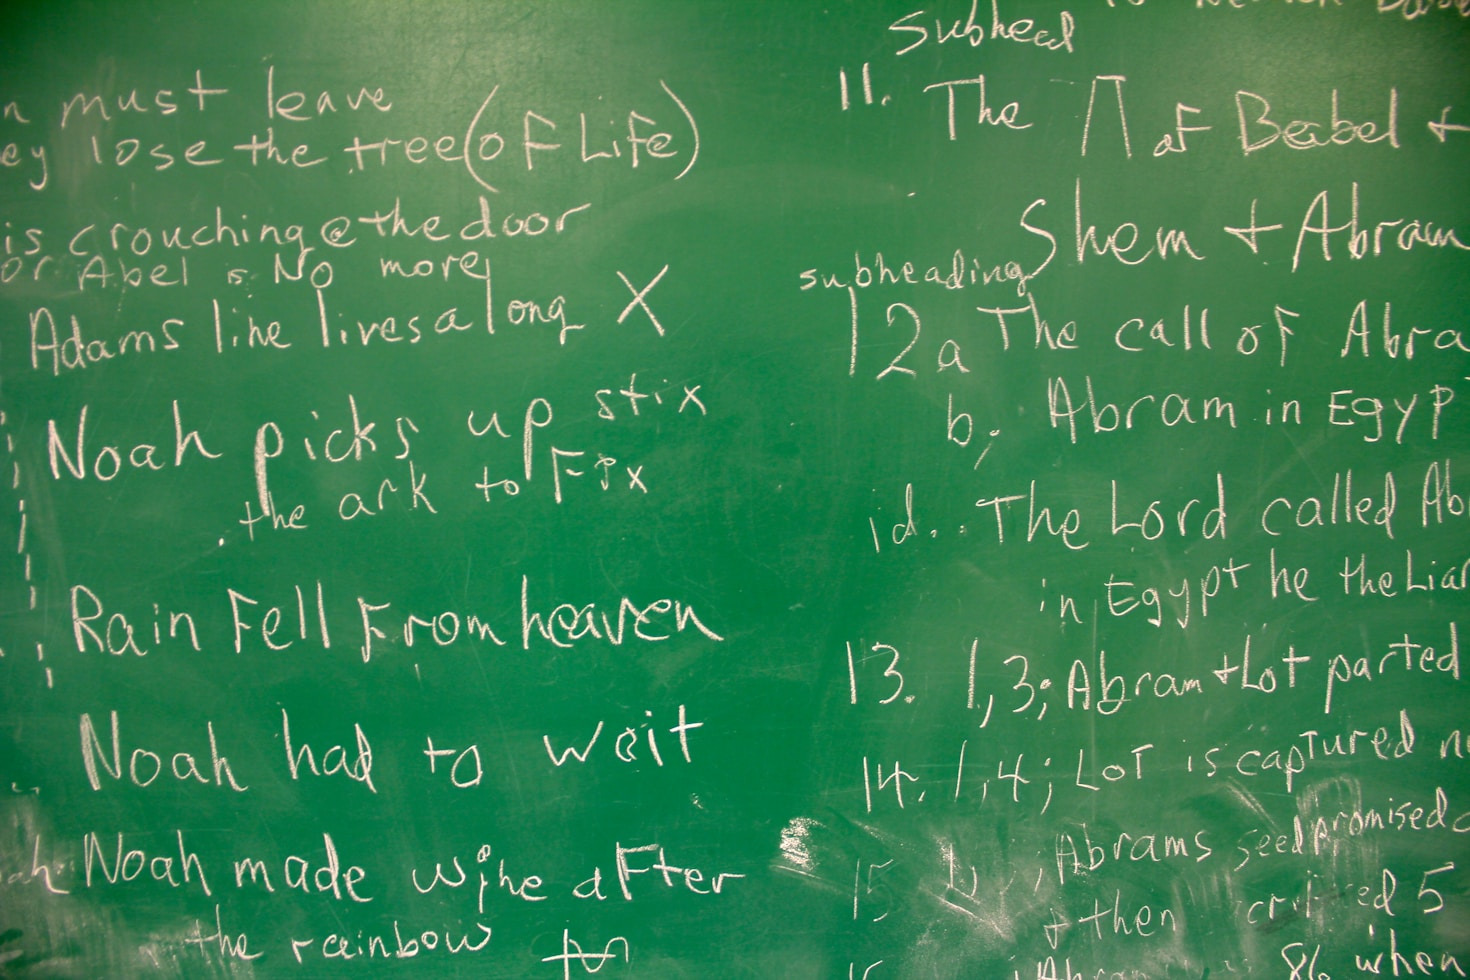 n must leave
ey lose the tree (of Life)
is crouching @ the door
or Abel is No more
Adams line lives along X
Noah picks up stix
the ark to Fix
Rain Fell From heaven
Noah had to wait
Noah made wine after
the rainbow
subhead
11. The Π of Babel +
Shem + Abram
subheading
12a The call of Abra
b, Abram in Egyp
d. The Lord called Ab
in Egypt he the Liar
13. 1,3; Abram + Lot parted
14. 1,4; Lot is captured
15 Abrams seed promised
+ then 5
86 when